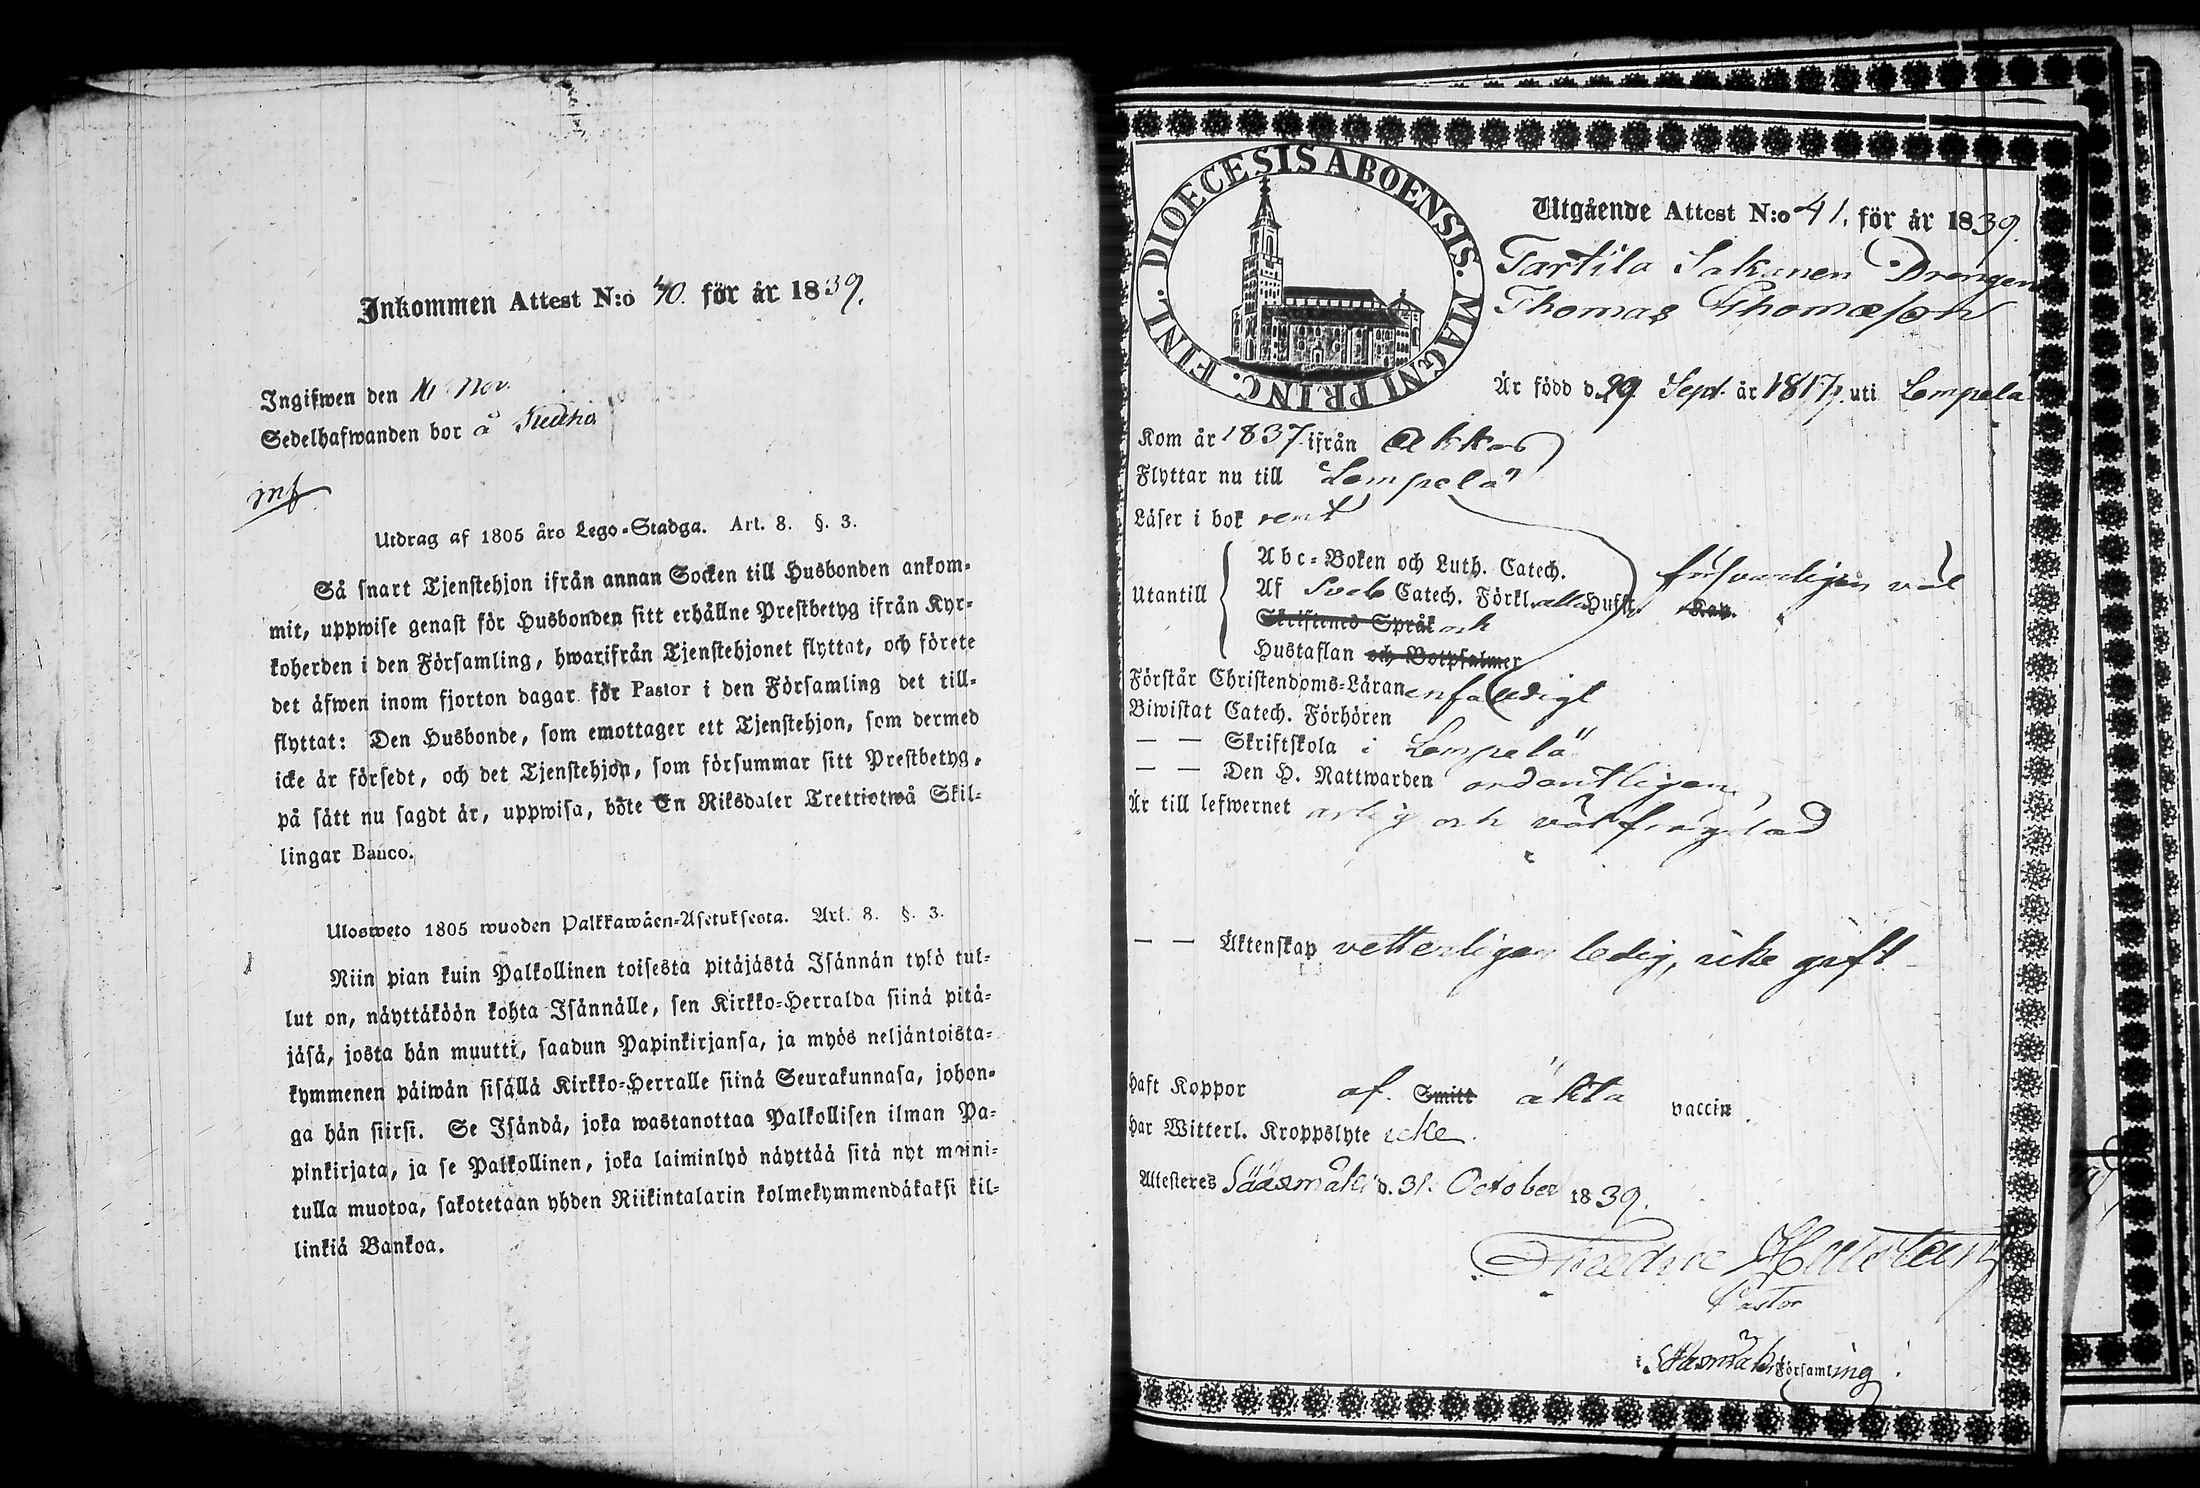 Inkommen Attest N:o 40. för år 1839.
Ingifwen den 16 Nov.
Sedelhafwanden bor å
Utdrag af 1805 års Lego-Stadga. Art. 8. §. 3.
Så snart Tjenstehjon ifrån annan Socken till Husbonden ankom-
mit, uppwise genast för Husbonden sitt erhållne Prestbetyg ifrån Kyr-
koherden i den Församling, hwarifrån Tjenstehjonet flyttat, och förete
det äfwen inom fjorton dagar för Pastor i den Församling det till-
flyttat: Den Husbonde, som emottager ett Tjenstehjon, som dermed
icke är försedt, och det Tjenstehjon, som försummar sitt Prestbetyg,
på sätt nu sagdt är, uppwisa, böte En Riksdaler Trettiotwå Skil-
lingar Banco.
Ulosweto 1805 wuoden Palkkawäen-Asetuksesta. Art. 8. §. 3.
Niin pian kuin Palkollinen toisesta pitäjästä Isännän tykö tul-
lut on, näyttäköön kohta Isännälle, sen Kirkko-Herralda siinä pitä-
jäsä, josta hän muutti, saadun Papinkirjansa, ja myös neljäntoista-
kymmenen päiwän sisällä Kirkko-Herralle siinä Seurakunnasa, johon-
ga hän siirsi. Se Isändä, joka wastanottaa Palkollisen ilman Pa-
pinkirjata, ja se Palkollinen, joka laiminlyö näyttää sitä nyt maini-
tulla muotoa, sakotetaan yhden Riikintalarin kolmekymmendäkaksi kil-
linkiä Bankoa.
DIOECESIS ABOENSIS. MAGNI PRINC. FINL.
Utgående Attest N:o 41. för år 1839.
Tarttila Sakanen Drengen
Thomas Thomæson
Är född d. 29 Sept. år 1817, uti Lempela
Kom år 1837 ifrån Akkas
Flyttar nu till Lempelä
Läser i bok rent
Utantill
Abc-Boken och Luth. Catech.
Af Sveb Catech. Förkl. alla Hufst. Kap. försvarligen väl
Skriftenes Språk och
Hustaflan och Botpsalmer
Förstår Christendoms-Läran enfaldigt
Biwistat Catech. Förhören
— — Skriftskola i Lempelä
— — Den H. Nattwarden ordentligen
Är till lefwernet ärlig och välfrägdad
— — Äktenskap vetterligen ledig, icke gift
Haft Koppor af. Smitt äkta vaccin.
Har Witterl. Kroppslyte icke.
Attesteres Sääxmäki d. 31. October 1839.
Pastor
i Sääxmäki Församling.